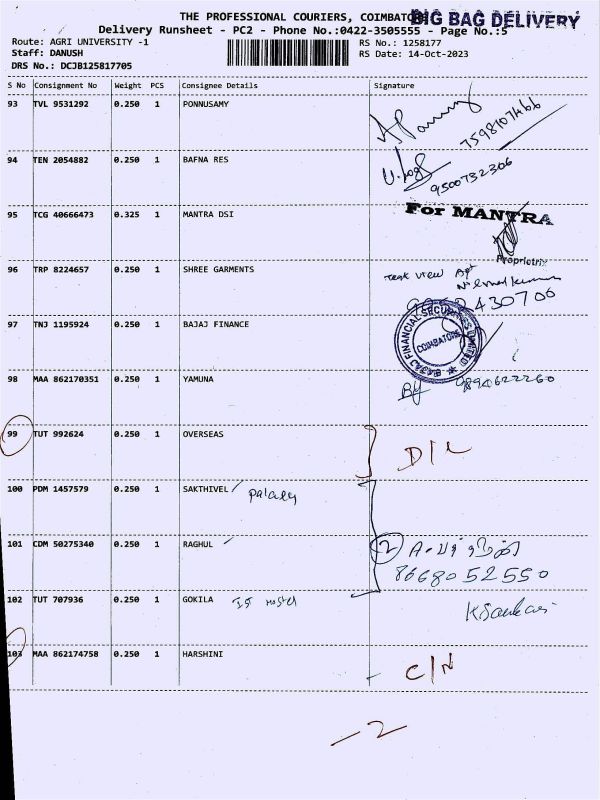 THE PROFESSIONAL COURIERS, COIMBATORE
BIG BAG DELIVERY
Delivery Runsheet - PC2 - Phone No.:0422-3505555 - Page No.:5
Route: AGRI UNIVERSITY -1
RS No.: 1258177
Staff: DANUSH
RS Date: 14-Oct-2023
DRS No.: DCJB125817705
S No Consignment No Weight PCS Consignee Details Signature
93 TVL 9531292 0.250 1 PONNUSAMY
7598107466
94 TEN 2054882 0.250 1 BAFNA RES
9500732306
95 TCG 40666473 0.325 1 MANTRA DSI For MANTRA
Proprietrix
96 TRP 8224657 0.250 1 SHREE GARMENTS
430706
97 TNJ 1195924 0.250 1 BAJAJ FINANCE
BAJAJ FINANCIAL SECURITIES LIMITED
COIMBATORE
98 MAA 862170351 0.250 1 YAMUNA
9894622260
99 TUT 992624 0.250 1 OVERSEAS
D/L
100 PDM 1457579 0.250 1 SAKTHIVEL
101 CDM 50275340 0.250 1 RAGHUL 2
8668052550
102 TUT 707936 0.250 1 GOKILA
103 MAA 862174758 0.250 1 HARSHINI
C/N
-2